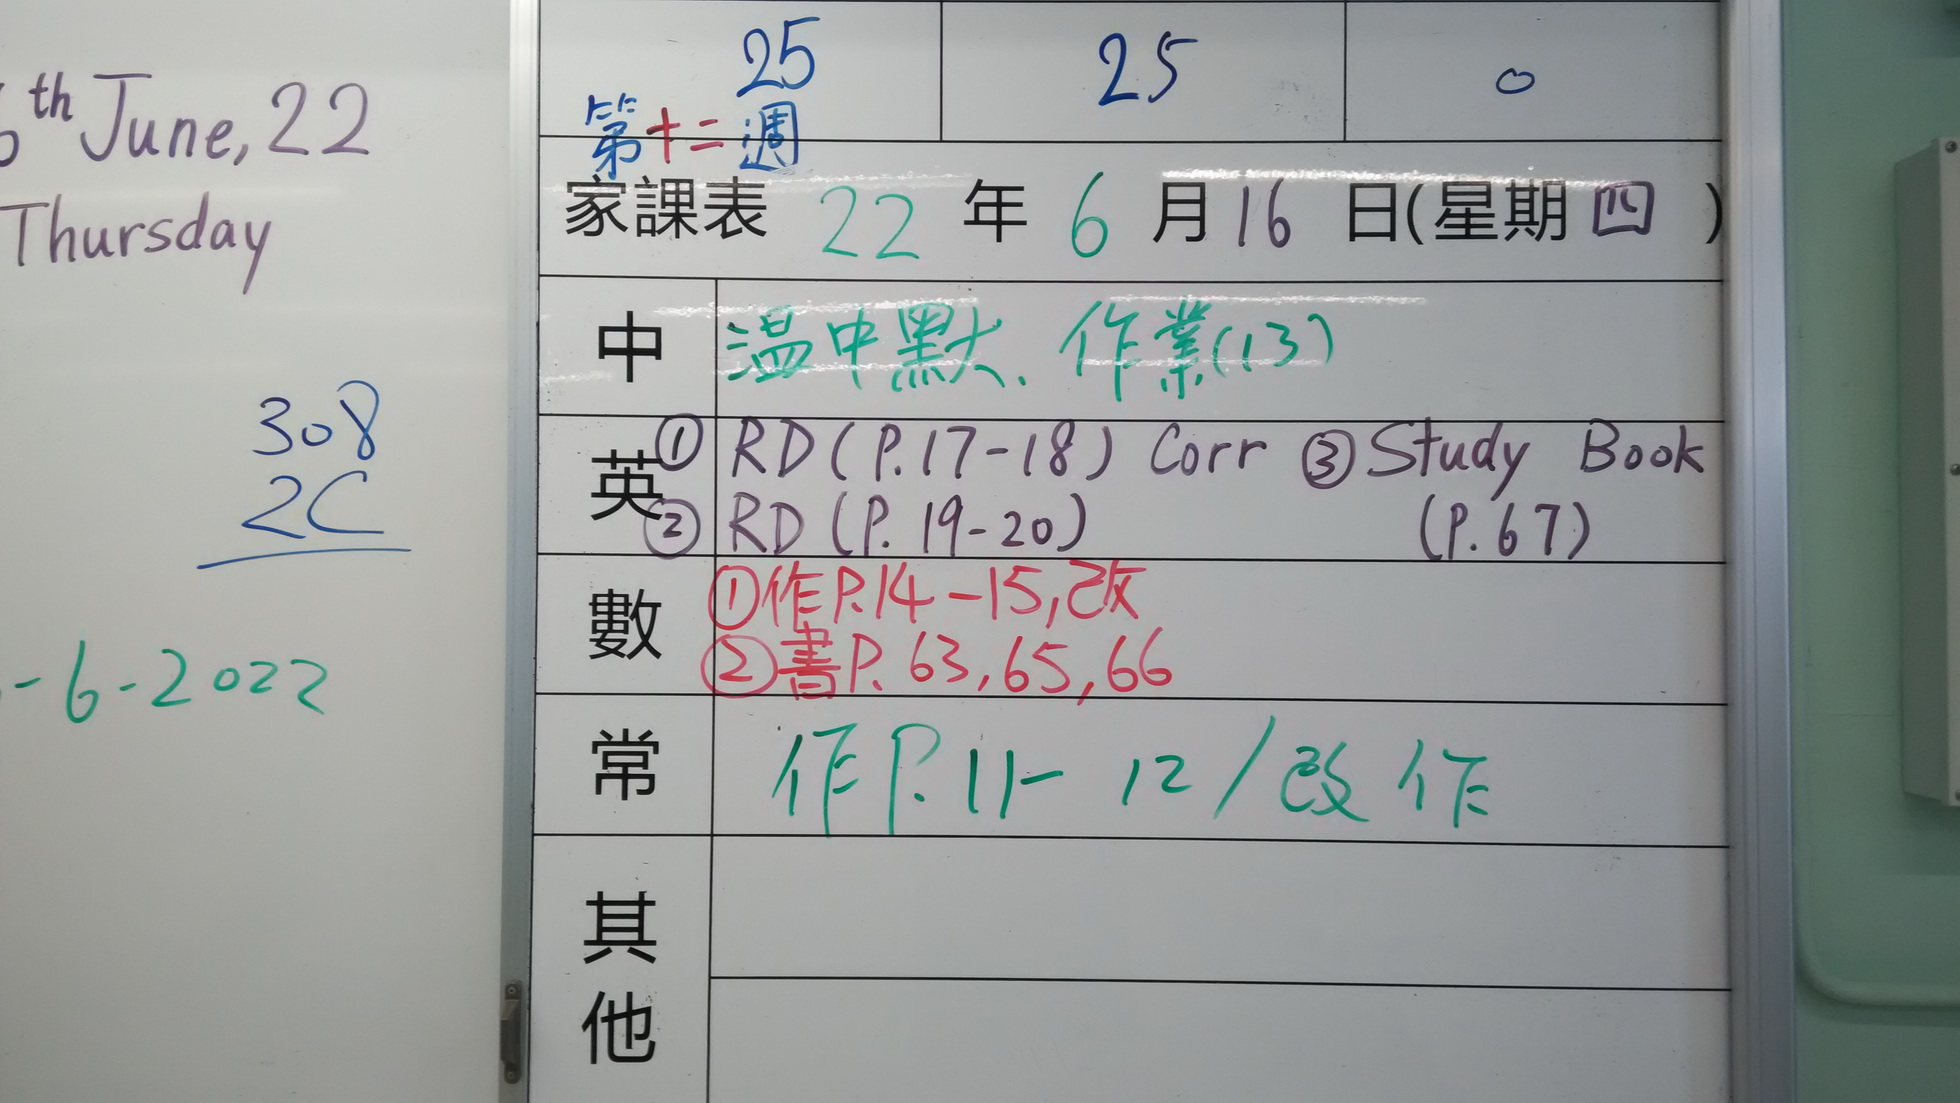 6th June, 22
Thursday
308
2C
-6-2022
25 25 0
第十二週
家課表 22 年 6 月 16 日(星期四)
中 温中默、作業(13)
英 ① RD (P.17-18) Corr ③ Study Book
② RD (P. 19-20) (P.67)
數 ①作P.14-15,改
②書P. 63,65,66
常 作P.11-12/改作
其
他